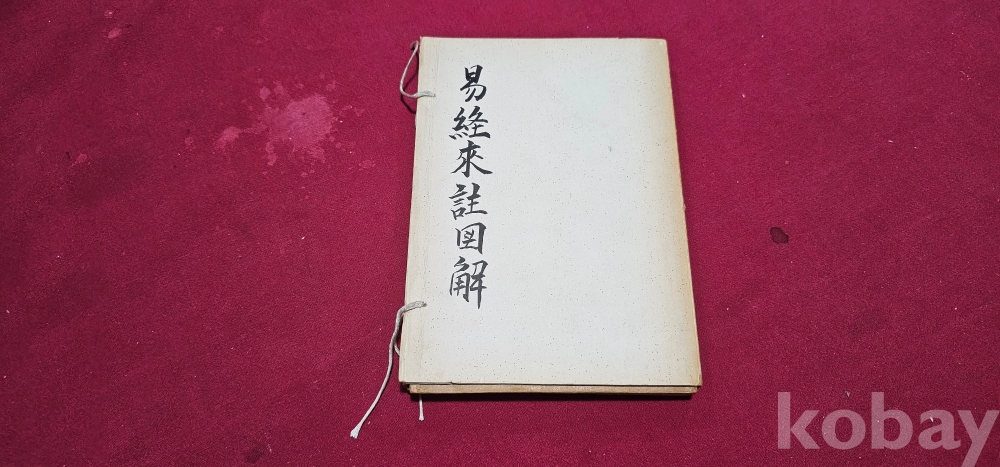 易経來註図解
kobay